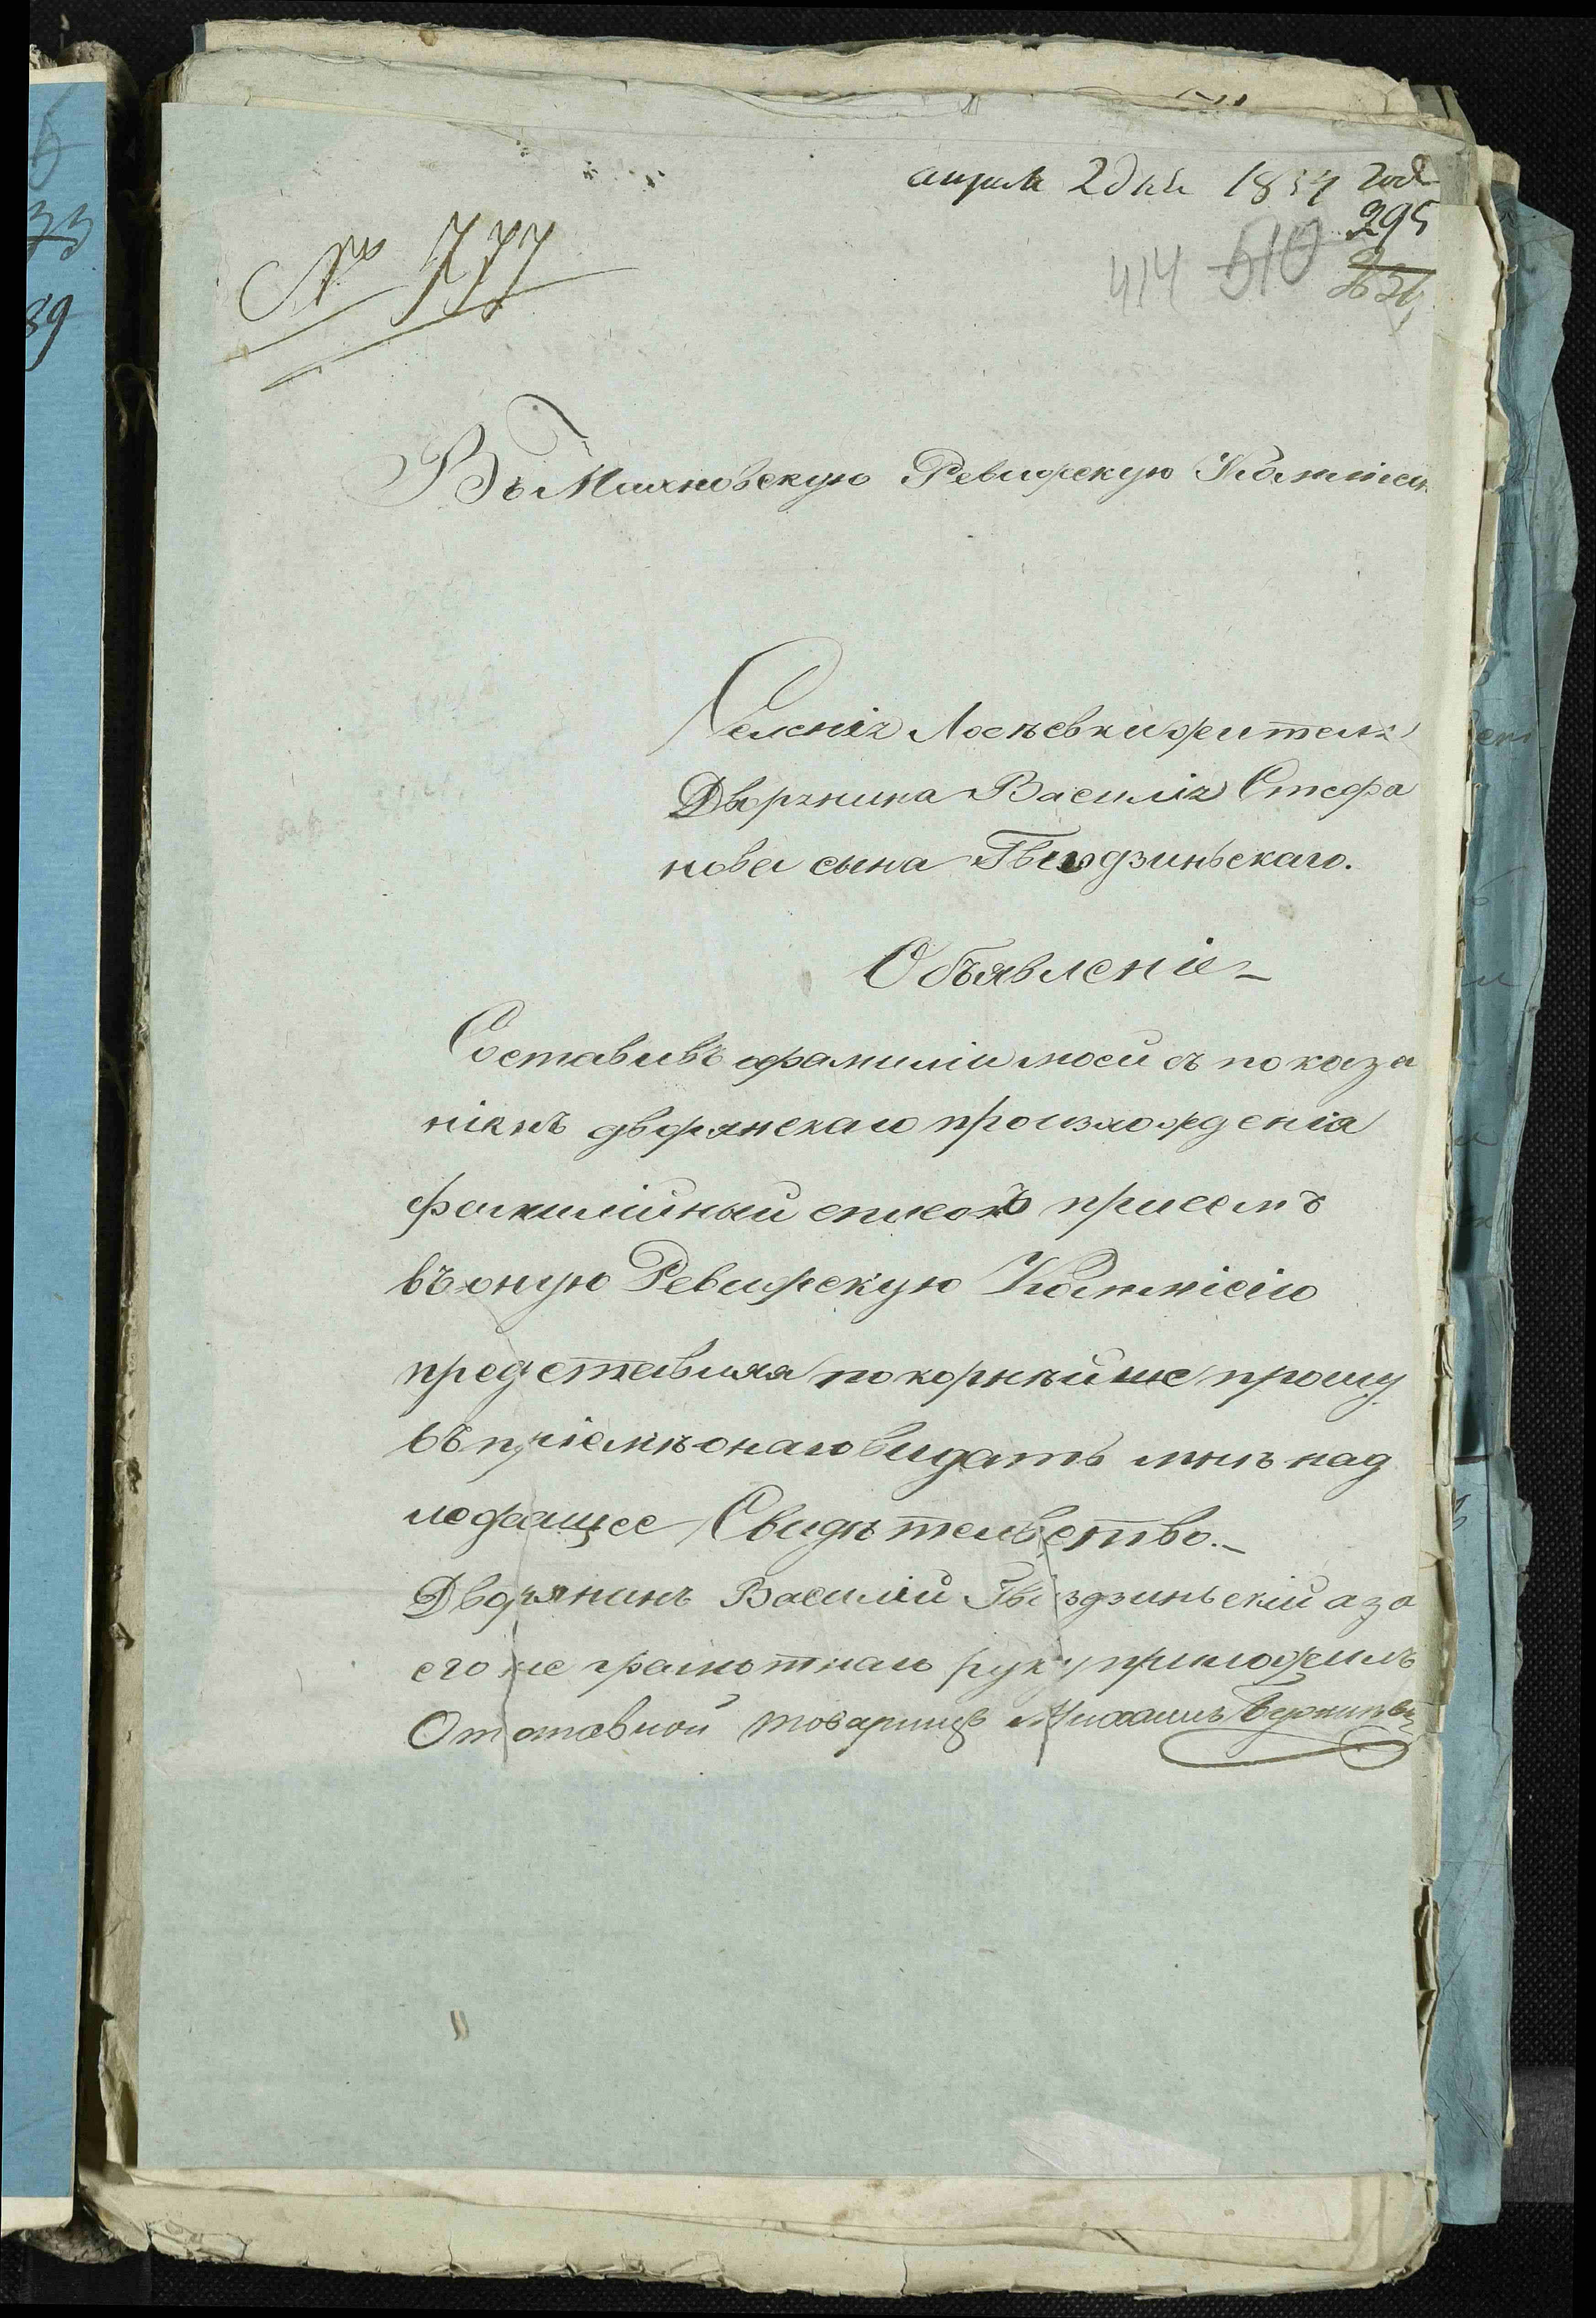 апреля 2 дня 1834 года
295
№ 777
414 510
Въ Махновскую Ревизскую Комисію
Селенія Лосѣевки жителя
Дворянина Василія Стефа
нова сына Гвіздзиньскаго.
Объявленіе
Составивъ о фамиліи моей съ показа
ніемъ дворянскаго происхожденія
фамилійный списокъ присемъ
въ оную Ревизскую Комисію
представляя покорнѣйше прошу
въ пріемѣ онаго видать мнѣ над
лежащее Свидѣтельство.
Дворянинъ Василій Гвіздзиньскій а за
его не грамотнаго руку приложилъ
Отставной товарищъ Михаилъ